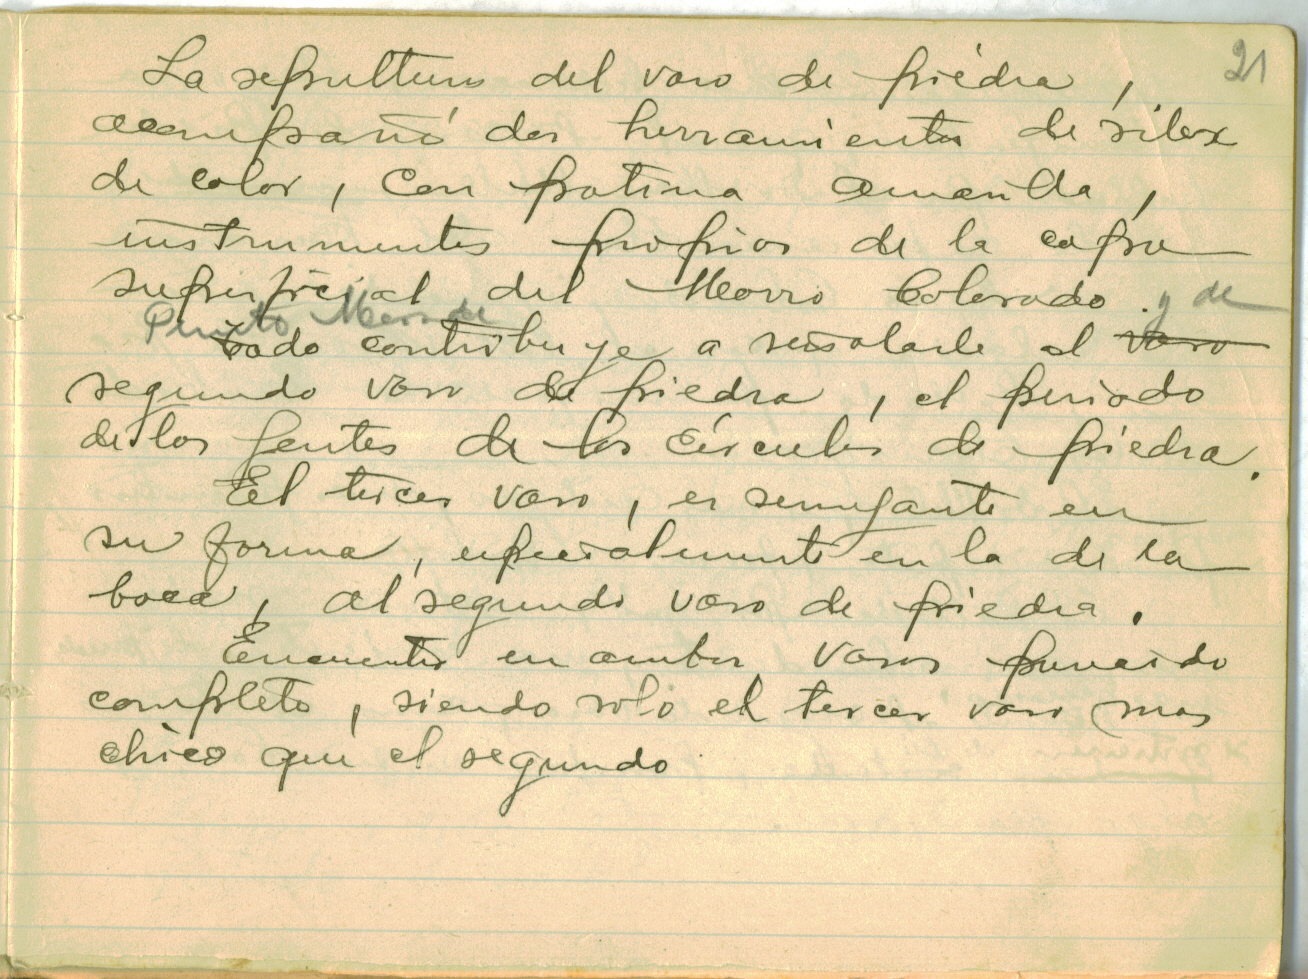 21
La sepulttura del vaso de piedra,
acompañó dos herramientas de silex
de color, con patina amarilla,
instrumentos propios de la capa
superficial del Morro Colorado. y de
Punto Morado
Todo contribuye a señalarle al vaso
segundo vaso de piedra, el periodo
de las gentes de los círculos de piedra.
El tercer vaso, es semejante en
su forma, especialmente en la de la
boca, al segundo vaso de piedra.
Encuentro en ambos vasos parecido
completo, siendo solo el tercer vaso mas
chico que el segundo